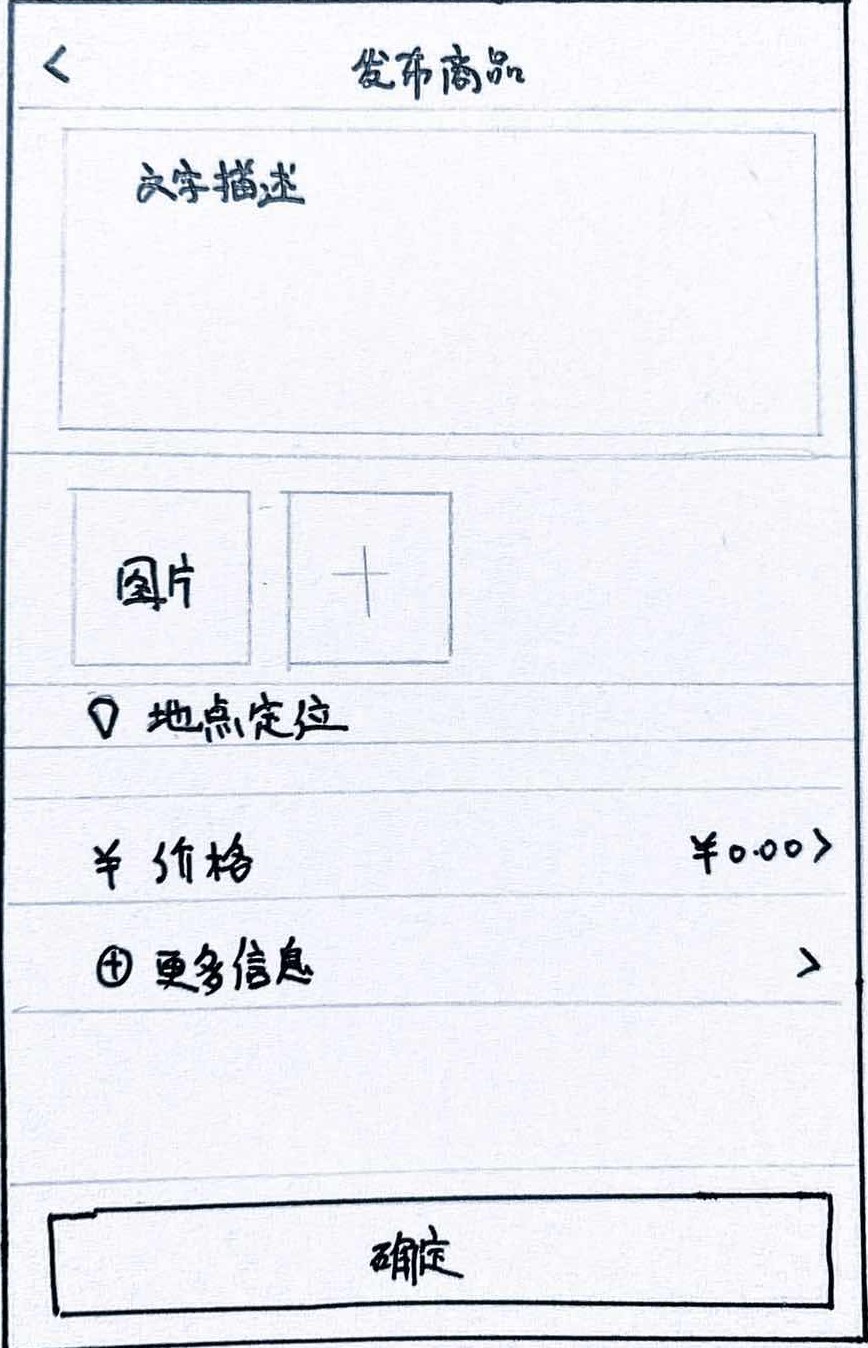 < 发布商品
文字描述
图片 +
地点定位
¥ 价格 ¥0.00 >
⊕ 更多信息 >
确定